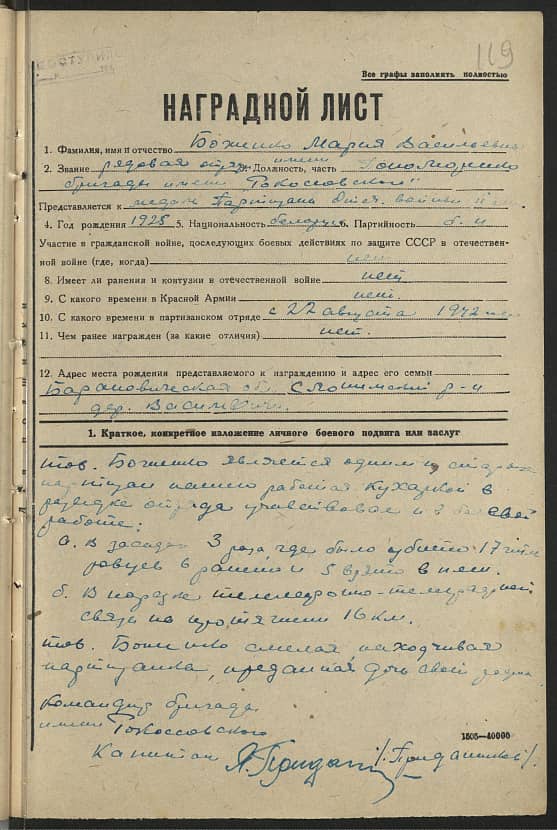 119
Все графы заполнять полностью
НАГРАДНОЙ ЛИСТ
1. Фамилия, имя и отчество Мария Васильевна
2. Звание рядовая отряда имени Должность, часть
бригады имени Рокоссовского"
Представляется к медали Партизана Отеч. войны II ст.
4. Год рождения 1925 5. Национальность белоруска 6. Партийность б-п
Участие в гражданской войне, последующих боевых действиях по защите СССР в отечествен-
ной войне (где, когда) нет
8. Имеет ли ранения и контузии в отечественной войне нет
9. С какого времени в Красной Армии нет.
10. С какого времени в партизанском отряде с 22 августа 1942
11. Чем ранее награжден (за какие отличия) нет.
12. Адрес места рождения представляемого к награждению и адрес его семьи
Барановическая обл. Слонимский р-н
дер.
1. Краткое, конкретное изложение личного боевого подвига или заслуг
тов. является одним из старых
партизан работая Кухаркой в
отряда участвовал и в боевой
работе:
а. В засадах 3 раза, где было убито 17
и 5 взято в плен.
б. В порезке телефонно-телеграфной
связи на протяжении 16 км.
тов. смелая находчивая
партизанка, преданная дочь своей родины
Командир бригады
имени Рокоссовского
Капитан
1505—40000